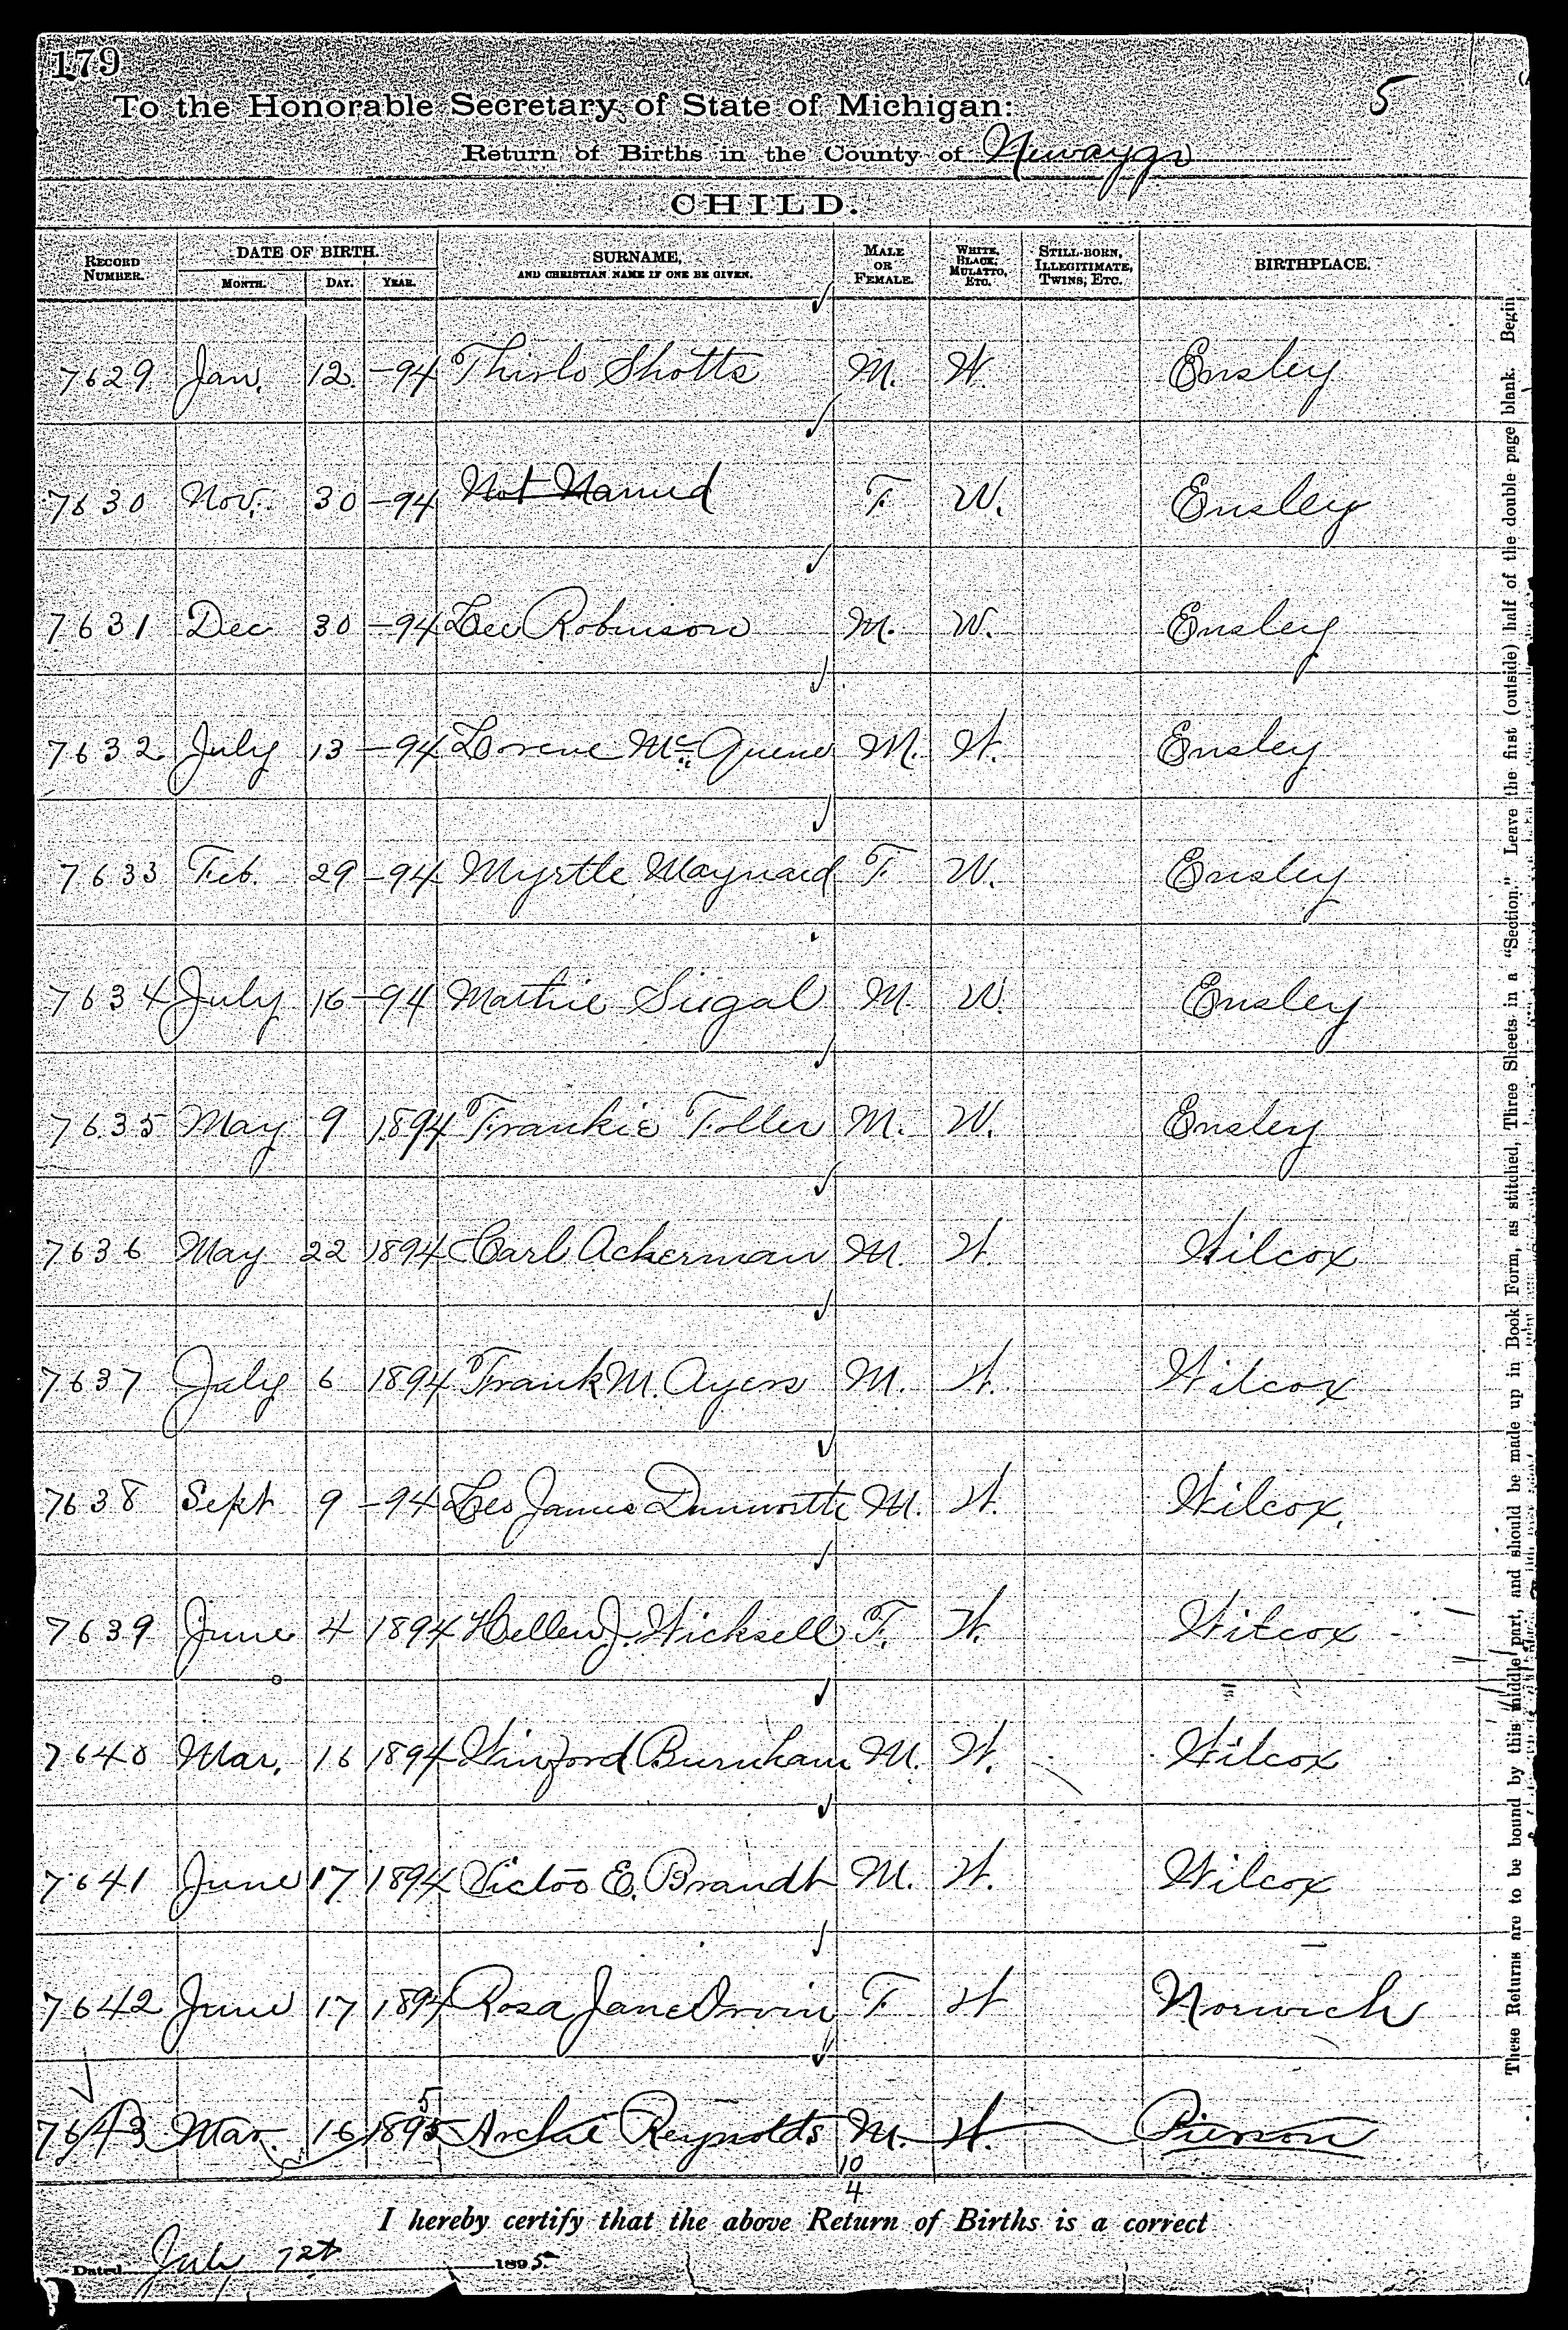 179
5
To the Honorable Secretary of State of Michigan:
Return of Births in the County of Newaygo
CHILD.
RECORD NUMBER. DATE OF BIRTH. MONTH. DAY. YEAR. SURNAME, AND CHRISTIAN NAME IF ONE BE GIVEN. MALE OR FEMALE. WHITE, BLACK, MULATTO, ETC. STILL-BORN, ILLEGITIMATE, TWINS, ETC. BIRTHPLACE.
7629 Jan. 12. -94 Thirlo Shotts M. W. Ensley
7630 Nov. 30 -94 Not Named F. W. Ensley
7631 Dec 30 -94 Lee Robinson M. W. Ensley
7632 July 13 -94 Lorene Mc Quene M. W. Ensley
7633 Feb. 29 -94 Myrtle Maynard F W. Ensley
7634 July 16 -94 Mathie Siegal M. W. Ensley
7635 May 9 1894 Frankie Foller M. W. Ensley
7636 May 22 1894 Carl Ackerman M. W. Wilcox
7637 July 6 1894 Frank M. Ayers M. W. Wilcox
7638 Sept 9 -94 Leo James Dunworth M. W. Wilcox.
7639 June 4 1894 Hellen J. Wicksell F. W. Wilcox
7640 Mar. 16 1894 Winford Burnham M. W. Wilcox
7641 June 17 1894 Victor E. Brandt M. W. Wilcox
7642 June 17 1894 Rosa Jane Orvin F W Norwich
7643 Mar. 16 1895 5 Archie Reynolds M. W. Pierson
10
4
I hereby certify that the above Return of Births is a correct
Dated July 1895
These Returns are to be bound by this middle part, and should be made up in Book Form, as stitched, Three Sheets in a "Section." Leave the first (outside) half of the double page blank. Begin